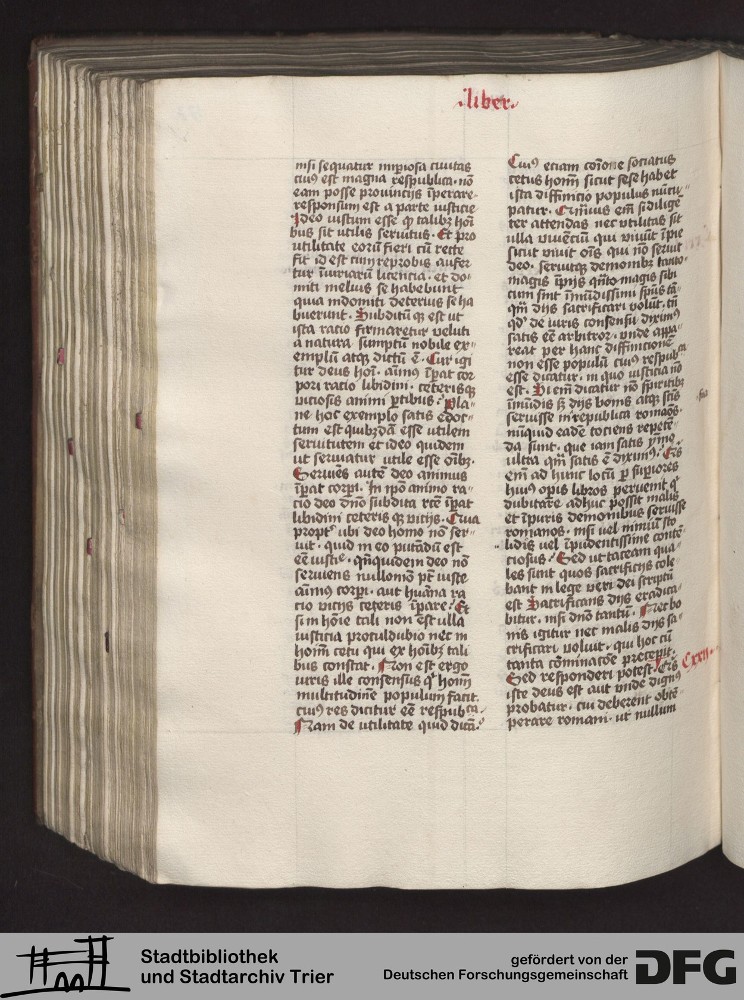 ·liber·
nisi sequatur imp̄iosa ciuitas
cuiꝰ est magna respublica· nō
eam posse prouincijs īperare·
responsum est a parte iusticie
Ideo iustum esse qꝫ talibꝫ hoī
bus sit utilis seruitus· Et pro
utilitate eorū fieri cū recte
fit id est cum reprobis aufer
tur iniuriarū licencia· et do-
miti melius se habebunt
quia indomiti deterius se ha
buerunt· Subditū qꝫ est ut
ista ratio firmaretur veluti
a natura sumptū nobile ex-
emplū atqꝫ dictū ē· Cur igi
tur deus hoī· aīmus īpat cor
pori ratio libidini· ceterisqꝫ
viciosis animi ꝑtibus· Pla-
ne hoc exemplo satis edoc-
tum est quibꝫdā esse utilem
seruitutem et ideo quidem
ut seruiatur utile esse oībꝫ·
Seruiēs autē deo animus
īpat corpi· In ip̄o animo ra-
cio deo dn̄o subdita rcē īpat
libidini ceteris qꝫ vicijs· Crua
propt͛ ubi deo homo nō ser-
uit· quid in eo putādū est
eē iusti͛· qn̄quidem deo nō
seruiens nullomō pt̄ iuste
aīmus corpi· aut hūana ra
cio vicijs ceteris īpare· Et
si in hoīe tali non est ulla
iusticia proculdubio nec in
hom̄ cetu qui ex hoībꝫ tali
bus constat· Non est ergo
iuris ille consensus qͥ hom̄
multitudinē populum facit
cuiꝰ res dicitur eē respubᶜᵃ·
Nam de utilitate quid dicā·
Cuiꝰ eciam coīone sociatus
cetus hom̄ sicut sese habet
ista diffinicio populus nūcu-
patur· Cum̄uis em̄ si dilige
ter attendas nec utilitas sit
ulla viuenciū qui viuūt īpie
sicut viuit oīs qui nō seruit
deo· seruitqꝫ demonibꝫ tanto
magis īpijs qͣnto magis sibi
cum sint īmūdissimi sp̄us tā-
qͣm dijs sacrificari volūt· tn̄
qdͦ de iuris consensu diximꝰ
satis eē arbitror· vnde appa-
reat per hanc diffinitionē
non esse populū cuiꝰ respubᶜᵃ
esse dicatur· in quo iusticia nō
est· Si em̄ dicatur nō spiritibꝫ
īmūdis sꝫ dijs bonis atqꝫ scīs
seruisse in republica romaōs·
nūquid eadē tociens repete-
da sunt· que iam satis ymo
ultra qͣm satis ē diximꝰ·
em̄ ad hunc locū ꝑ suꝑiores
huiꝰ opis libros peruenit qͥ
dubitare adhuc possit malis
et īpuris demonibus seruisse
romanos· nisi vel nimiū sto
lidus vel īpudentissime contē
ciosus· Sed ut taceam qua-
les sunt quos sacrificijs cole
bant in lege veri dei scriptū
est Sacrificans dijs eradica-
bitur· nisi dn̄o tantū· Nec bo
nis igitur nec malis dijs sa-
crificari voluit· qui hoc cū
tanta cōminacōe precepit·
Sed responderi potest· Cxxij·
iste deus est aut unde dignꝰ
probatur· cui deberent obtē-
perare romani· ut nullum
Stadtbibliothek
und Stadtarchiv Trier
gefördert von der
Deutschen Forschungsgemeinschaft
DFG